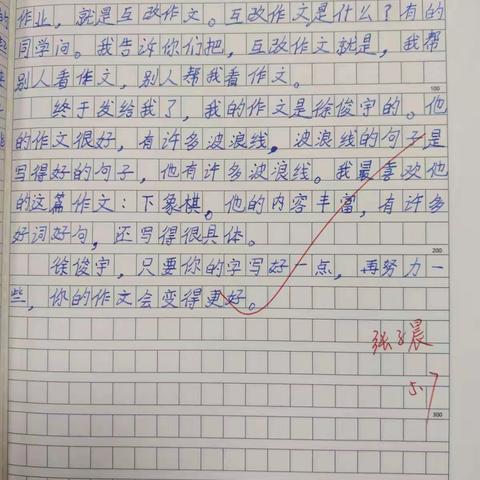 作业，就是互改作文。互改作文是什么？有的
同学问。我告诉你们把，互改作文就是，我帮
别人看作文，别人帮我看作文。
100
终于发给我了，我的作文是徐俊宇的。他
的作文很好，有许多波浪线，波浪线的句子是
写得好的句子，他有许多波浪线。我最喜欢他
的这篇作文：下象棋。他的内容丰富，有许多
好词好句，还写得很具体。
200
徐俊宇，只要你的字写好一点，再努力一
些，你的作文会变得更好。
张子晨
5.7
300